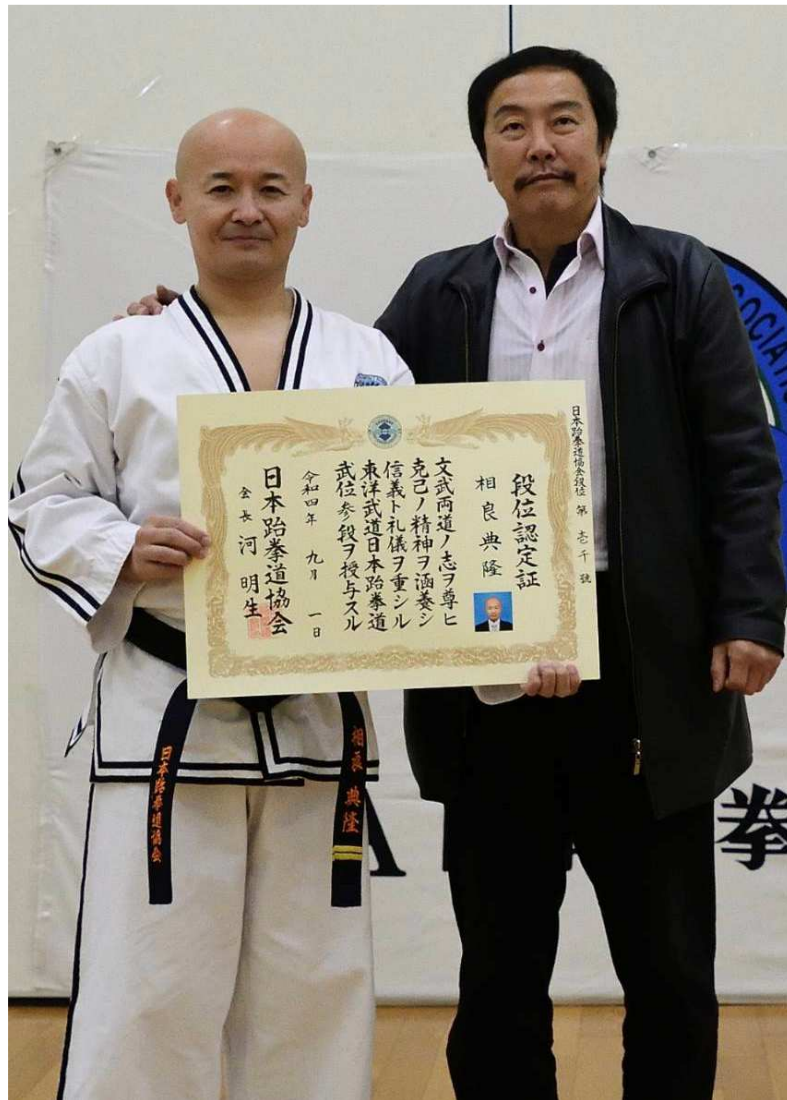 日本跆拳道協会段位 第 壱千 號
段位認定証
相良典隆
文武両道ノ志ヲ尊ヒ
克己ノ精神ヲ涵養シ
信義ト礼儀ヲ重シル
東洋武道日本跆拳道
武位参段ヲ授与スル
令和四年 九月 一日
日本跆拳道協会
会長 河 明生
日本跆拳道協会
相良典隆
SOCIATI
A
拳